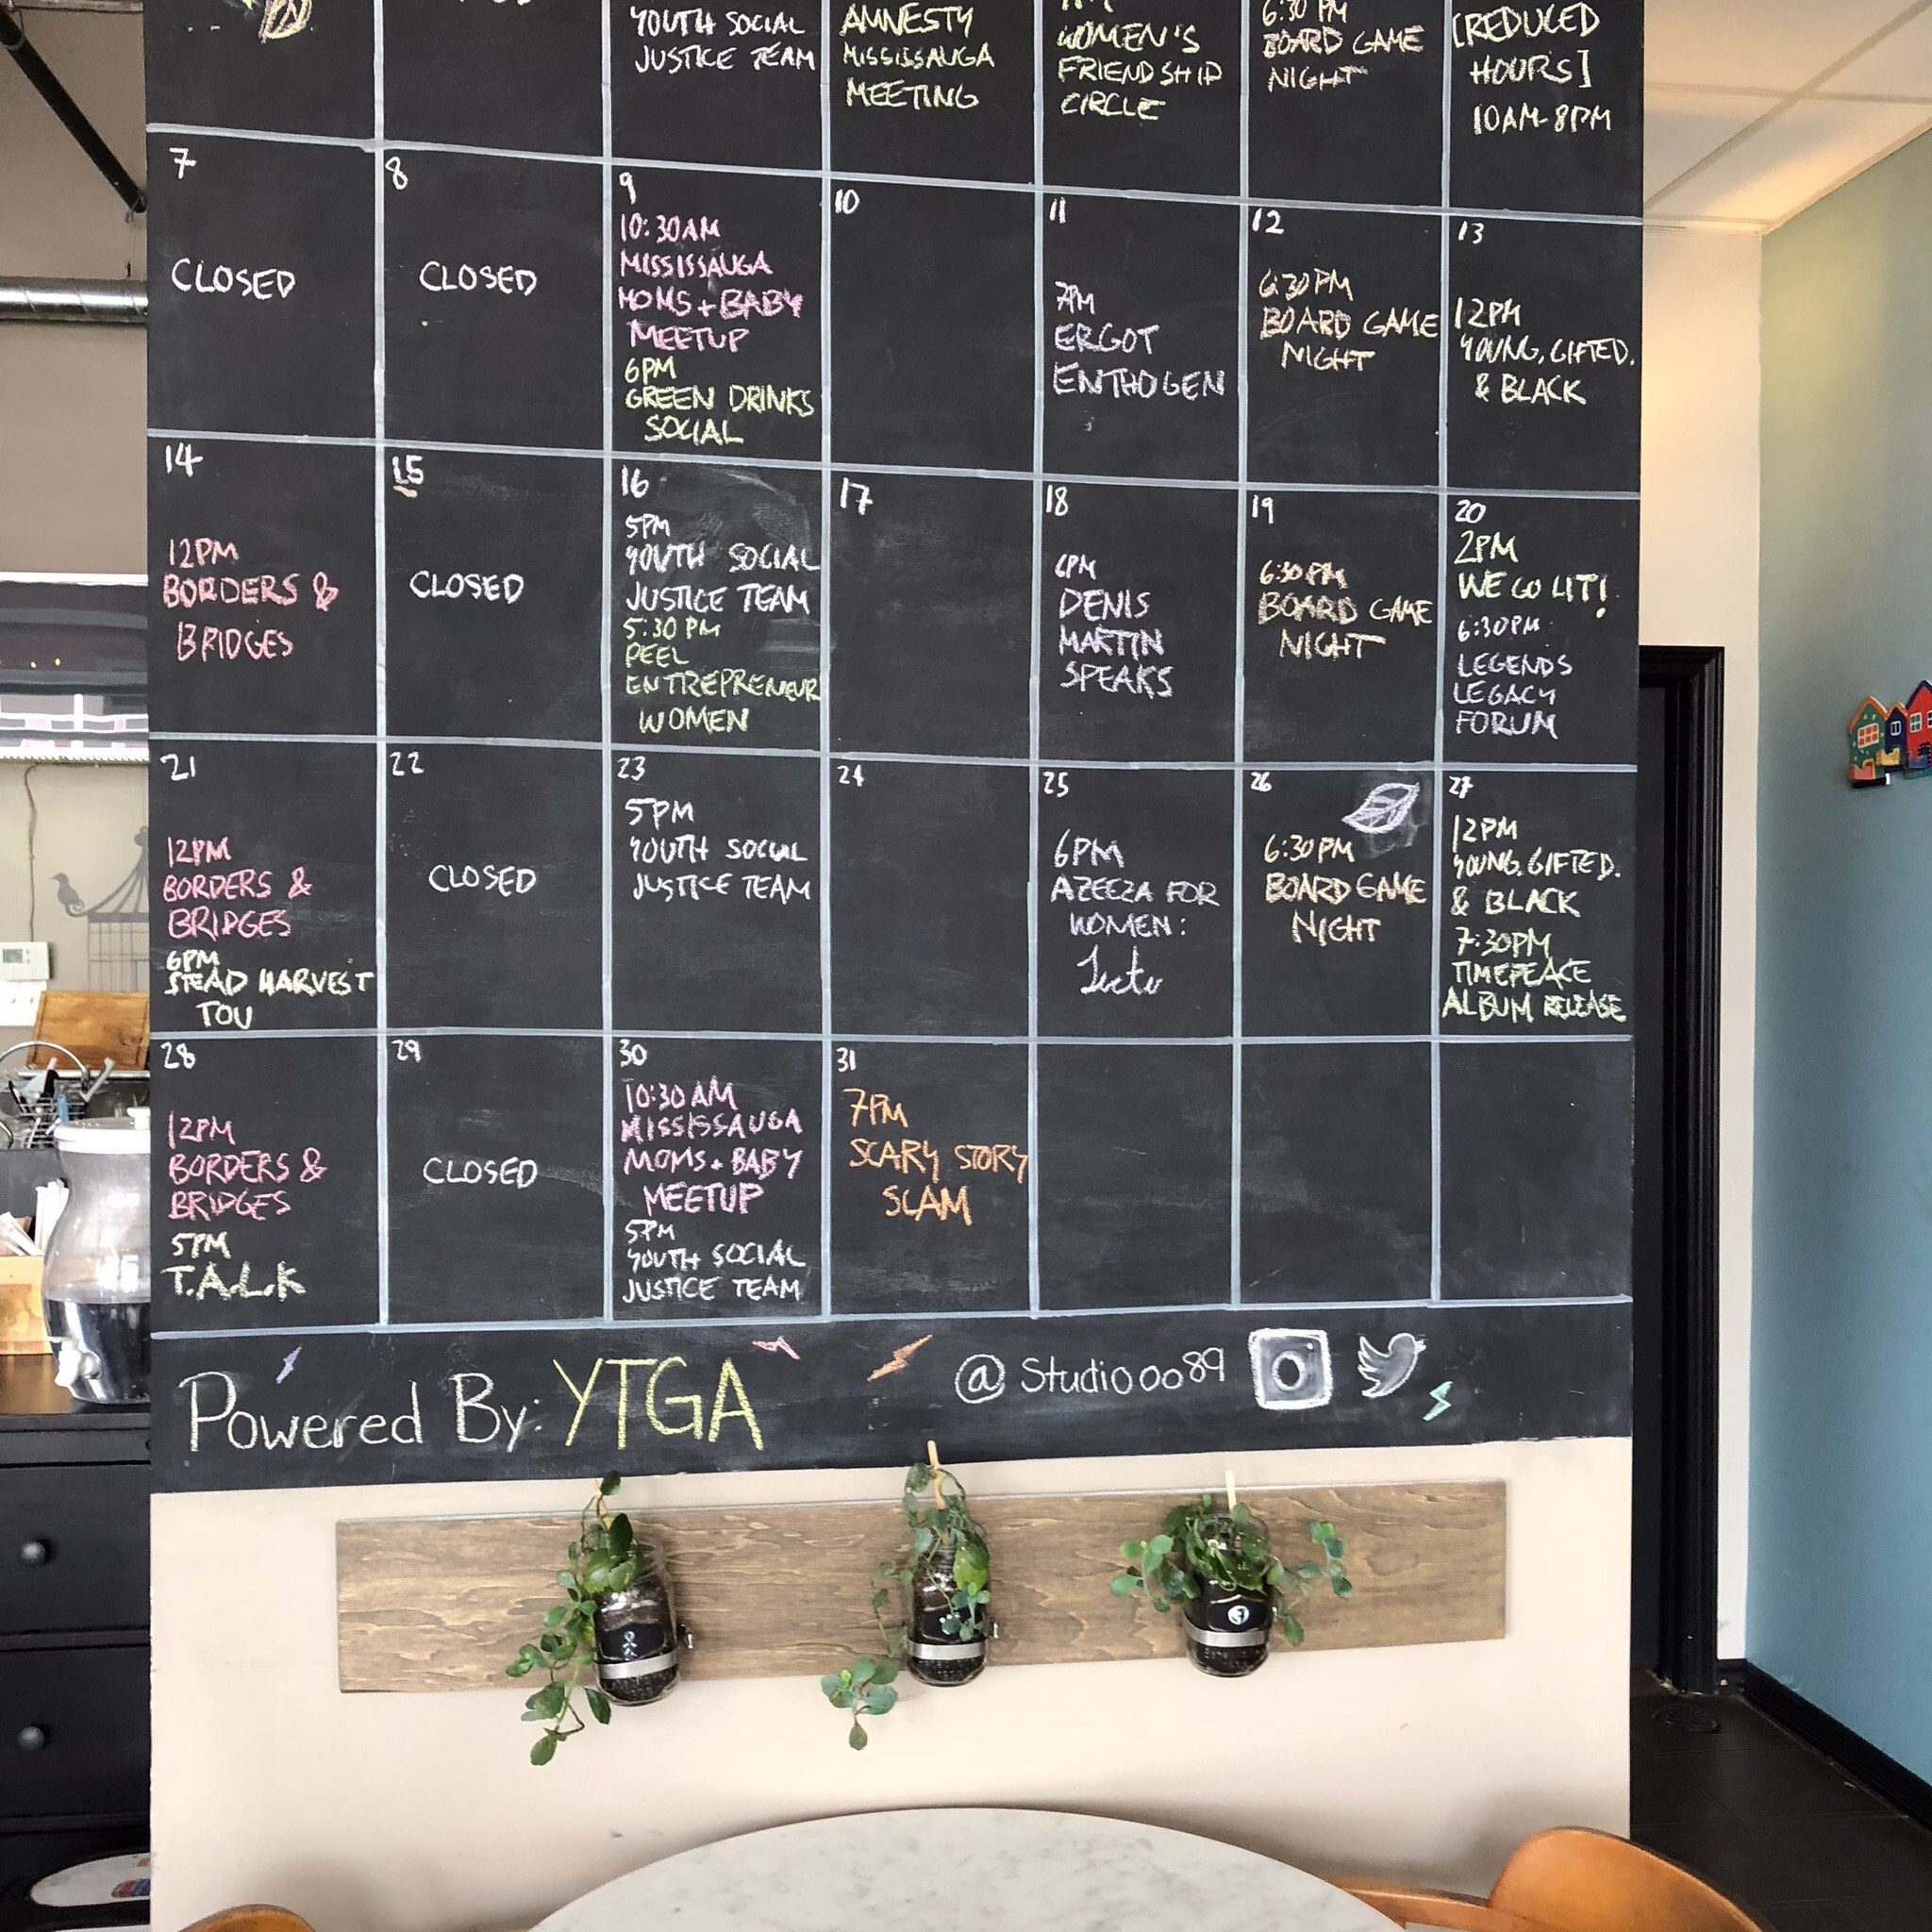 YOUTH SOCIAL
JUSTICE TEAM
AMNESTY
MISSISSAUGA
MEETING
WOMEN'S
FRIENDSHIP
CIRCLE
6:30 PM
BOARD GAME
NIGHT
[REDUCED
HOURS]
10AM-8PM
7
CLOSED
8
CLOSED
9
10:30AM
MISSISSAUGA
MOMS + BABY
MEETUP
6PM
GREEN DRINKS
SOCIAL
10
11
7PM
ERGOT
ENTHOGEN
12
6:30PM
BOARD GAME
NIGHT
13
12PM
YOUNG, GIFTED.
& BLACK
14
12PM
BORDERS &
BRIDGES
15
CLOSED
16
5PM
YOUTH SOCIAL
JUSTICE TEAM
5:30 PM
PEEL
ENTREPRENEUR
WOMEN
17
18
6PM
DENIS
MARTIN
SPEAKS
19
6:30PM
BOARD GAME
NIGHT
20
2PM
WE GO LIT!
6:30PM
LEGENDS
LEGACY
FORUM
21
12PM
BORDERS &
BRIDGES
6PM
STEAD HARVEST
TOU
22
CLOSED
23
5PM
YOUTH SOCIAL
JUSTICE TEAM
24
25
6PM
AZEEZA FOR
WOMEN:
26
6:30PM
BOARD GAME
NIGHT
27
12PM
YOUNG, GIFTED.
& BLACK
7:30PM
TIMEPEACE
ALBUM RELEASE
28
12PM
BORDERS &
BRIDGES
5PM
T.A.L.K
29
CLOSED
30
10:30 AM
MISSISSAUGA
MOMS + BABY
MEETUP
5PM
YOUTH SOCIAL
JUSTICE TEAM
31
7PM
SCARY STORY
SLAM
Powered By: YTGA
@Studio0089